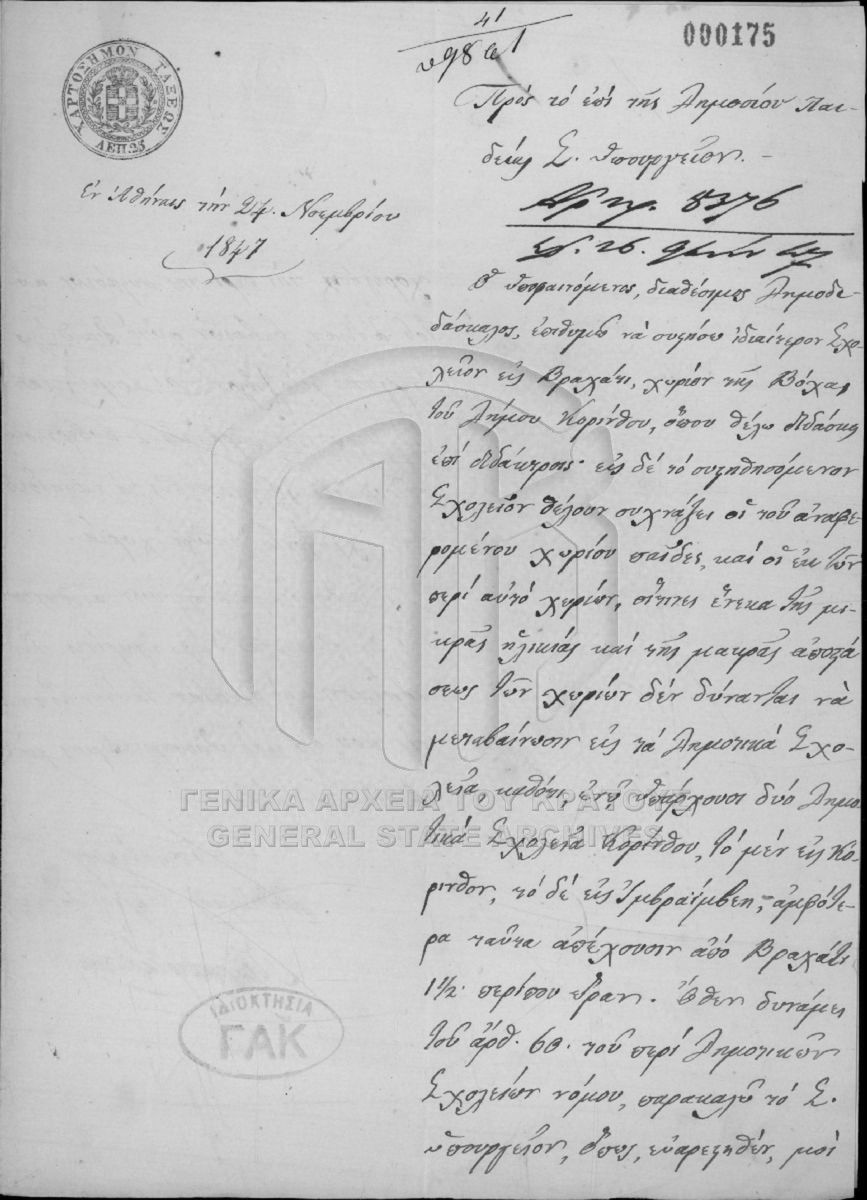 41
000175
ΧΑΡΤΟΣΗΜΟΝ ΤΑΞΕΩΣ
ΛΕΠ.25
Πρὸς τὸ ἐπὶ τῆς Δημοσίου Παι-
δείας Σ. Ὑπουργεῖον. –
Ἐν Ἀθήναις τὴν 24. Νοεμβρίου
1847
Ἀρ. πρ. 8376
26. 47
Ὁ ὑποφαινόμενος, διαθέσιμος Δημοδι-
δάσκαλος, ἐπιθυμῶ νὰ συστήσω ἰδιαίτερον Σχο-
λεῖον εἰς Βραχάτι, χωρίον τῆς Βόχας
τοῦ Δήμου Κορίνθου, ὅπου θέλω διδάσκει
ἐπὶ διδάκτροις· εἰς δὲ τὸ συστηθησόμενον
Σχολεῖον θέλουν συχνάζει οἱ τοῦ ἀναφε-
ρομένου χωρίου παῖδες, καὶ οἱ ἐκ τῶν
περὶ αὐτὸ χωρίων, οἵτινες ἕνεκα τῆς μι-
κρᾶς ἡλικίας καὶ τῆς μακρᾶς ἀποστά-
σεως τῶν χωρίων δὲν δύνανται νὰ
μεταβαίνωσιν εἰς τὰ Δημοτικὰ Σχο-
λεῖα, καθότι, ἐνῷ ὑπάρχουσι δύο Δημο-
τικὰ Σχολεῖα Κορίνθου, τὸ μὲν εἰς Κό-
ρινθον, τὸ δὲ εἰς Ἰμβραΐμβεη, ἀμφότε-
ρα ταῦτα ἀπέχουσιν ἀπὸ Βραχάτι
1 1/2. περίπου ὥραν. Ὅθεν δυνάμει
τοῦ ἄρθ. 60. τοῦ περὶ Δημοτικῶν
Σχολείων νόμου, παρακαλῶ τὸ Σ.
ὑπουργεῖον, ὅπως, εὐαρεστηθέν, μοὶ
ΓΕΝΙΚΑ ΑΡΧΕΙΑ ΤΟΥ ΚΡΑΤΟΥΣ
GENERAL STATE ARCHIVES
ΙΔΙΟΚΤΗΣΙΑ
ΓΑΚ